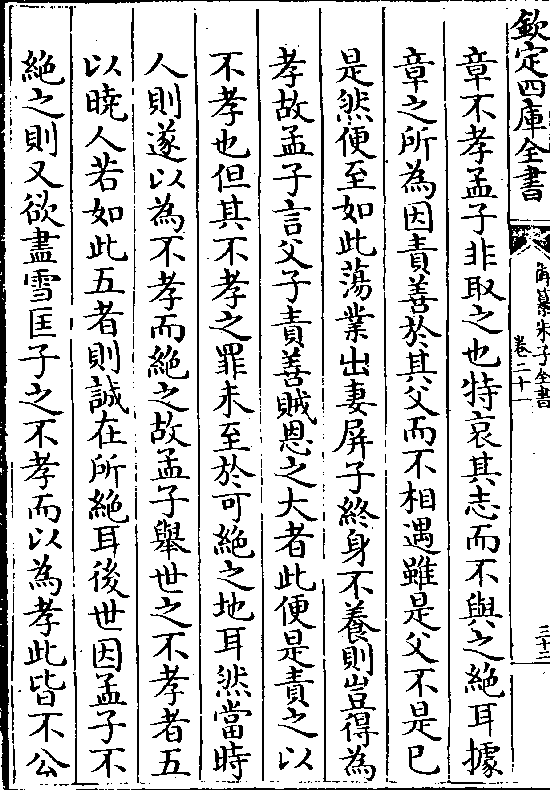 欽定四庫全書
御纂朱子全書
卷二十一
三十二
章不孝孟子非取之也特哀其志而不與之絶耳據
章之所為因責善於其父而不相遇雖是父不是已
是然便至如此蕩業出妻屏子終身不養則豈得為
孝故孟子言父子責善賊恩之大者此便是責之以
不孝也但其不孝之罪未至於可絶之地耳然當時
人則遂以為不孝而絶之故孟子舉世之不孝者五
以曉人若如此五者則誠在所絶耳後世因孟子不
絶之則又欲盡雪匡子之不孝而以為孝此皆不公